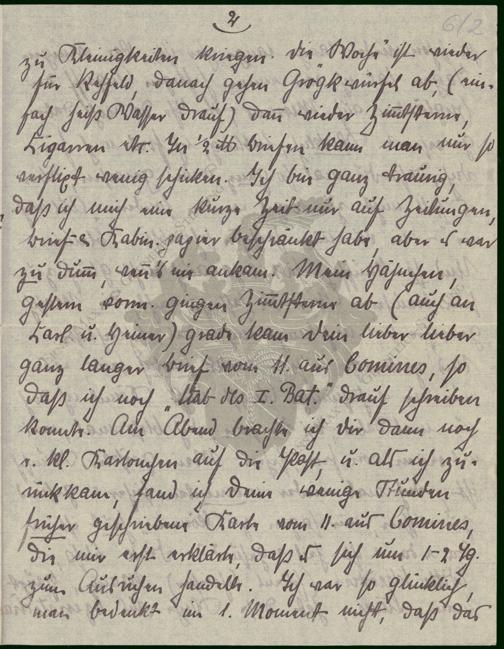 2
6/2
zu Kleinigkeiten kriegen. Die "Woche" ist wieder
für Reffeld, danach gehen Grögkwürfel ab, (ein-
fach heiß Wasser drauf) dan wieder Zimtsterne,
Cigarren etc. In ½ ℔ briefen kann man nur so
verflixt wenig schicken. Ich bin ganz traurig,
daß ich mich eine kurze Zeit nur auf Zeitungen,
brief & Kabin. papier beschränkt habe, aber s war
zu dumm, wenn's nie ankam. Mein Hähnchen,
gestern vorm. gingen Zimtsterne ab (auch an
Karl u. Heiner) grade kam Dein lieber lieber
ganz langer brief vom 11. aus Comines, so
daß ich noch "Stab des I. Bat." drauf schreiben
konnte. Am Abend brachte ich dir dann noch
s. kl. Kartönchen auf die Post, u. als ich zu-
rückkam, fand ich Deine wenige Stunden
früher geschriebene Karte vom 11. aus Comines,
die mir erst erklärte, daß s sich um 1-2 Tg.
zum Ausruhen handelte. Ich war so glücklich,
man bedenkt im 1. Moment nicht, daß das